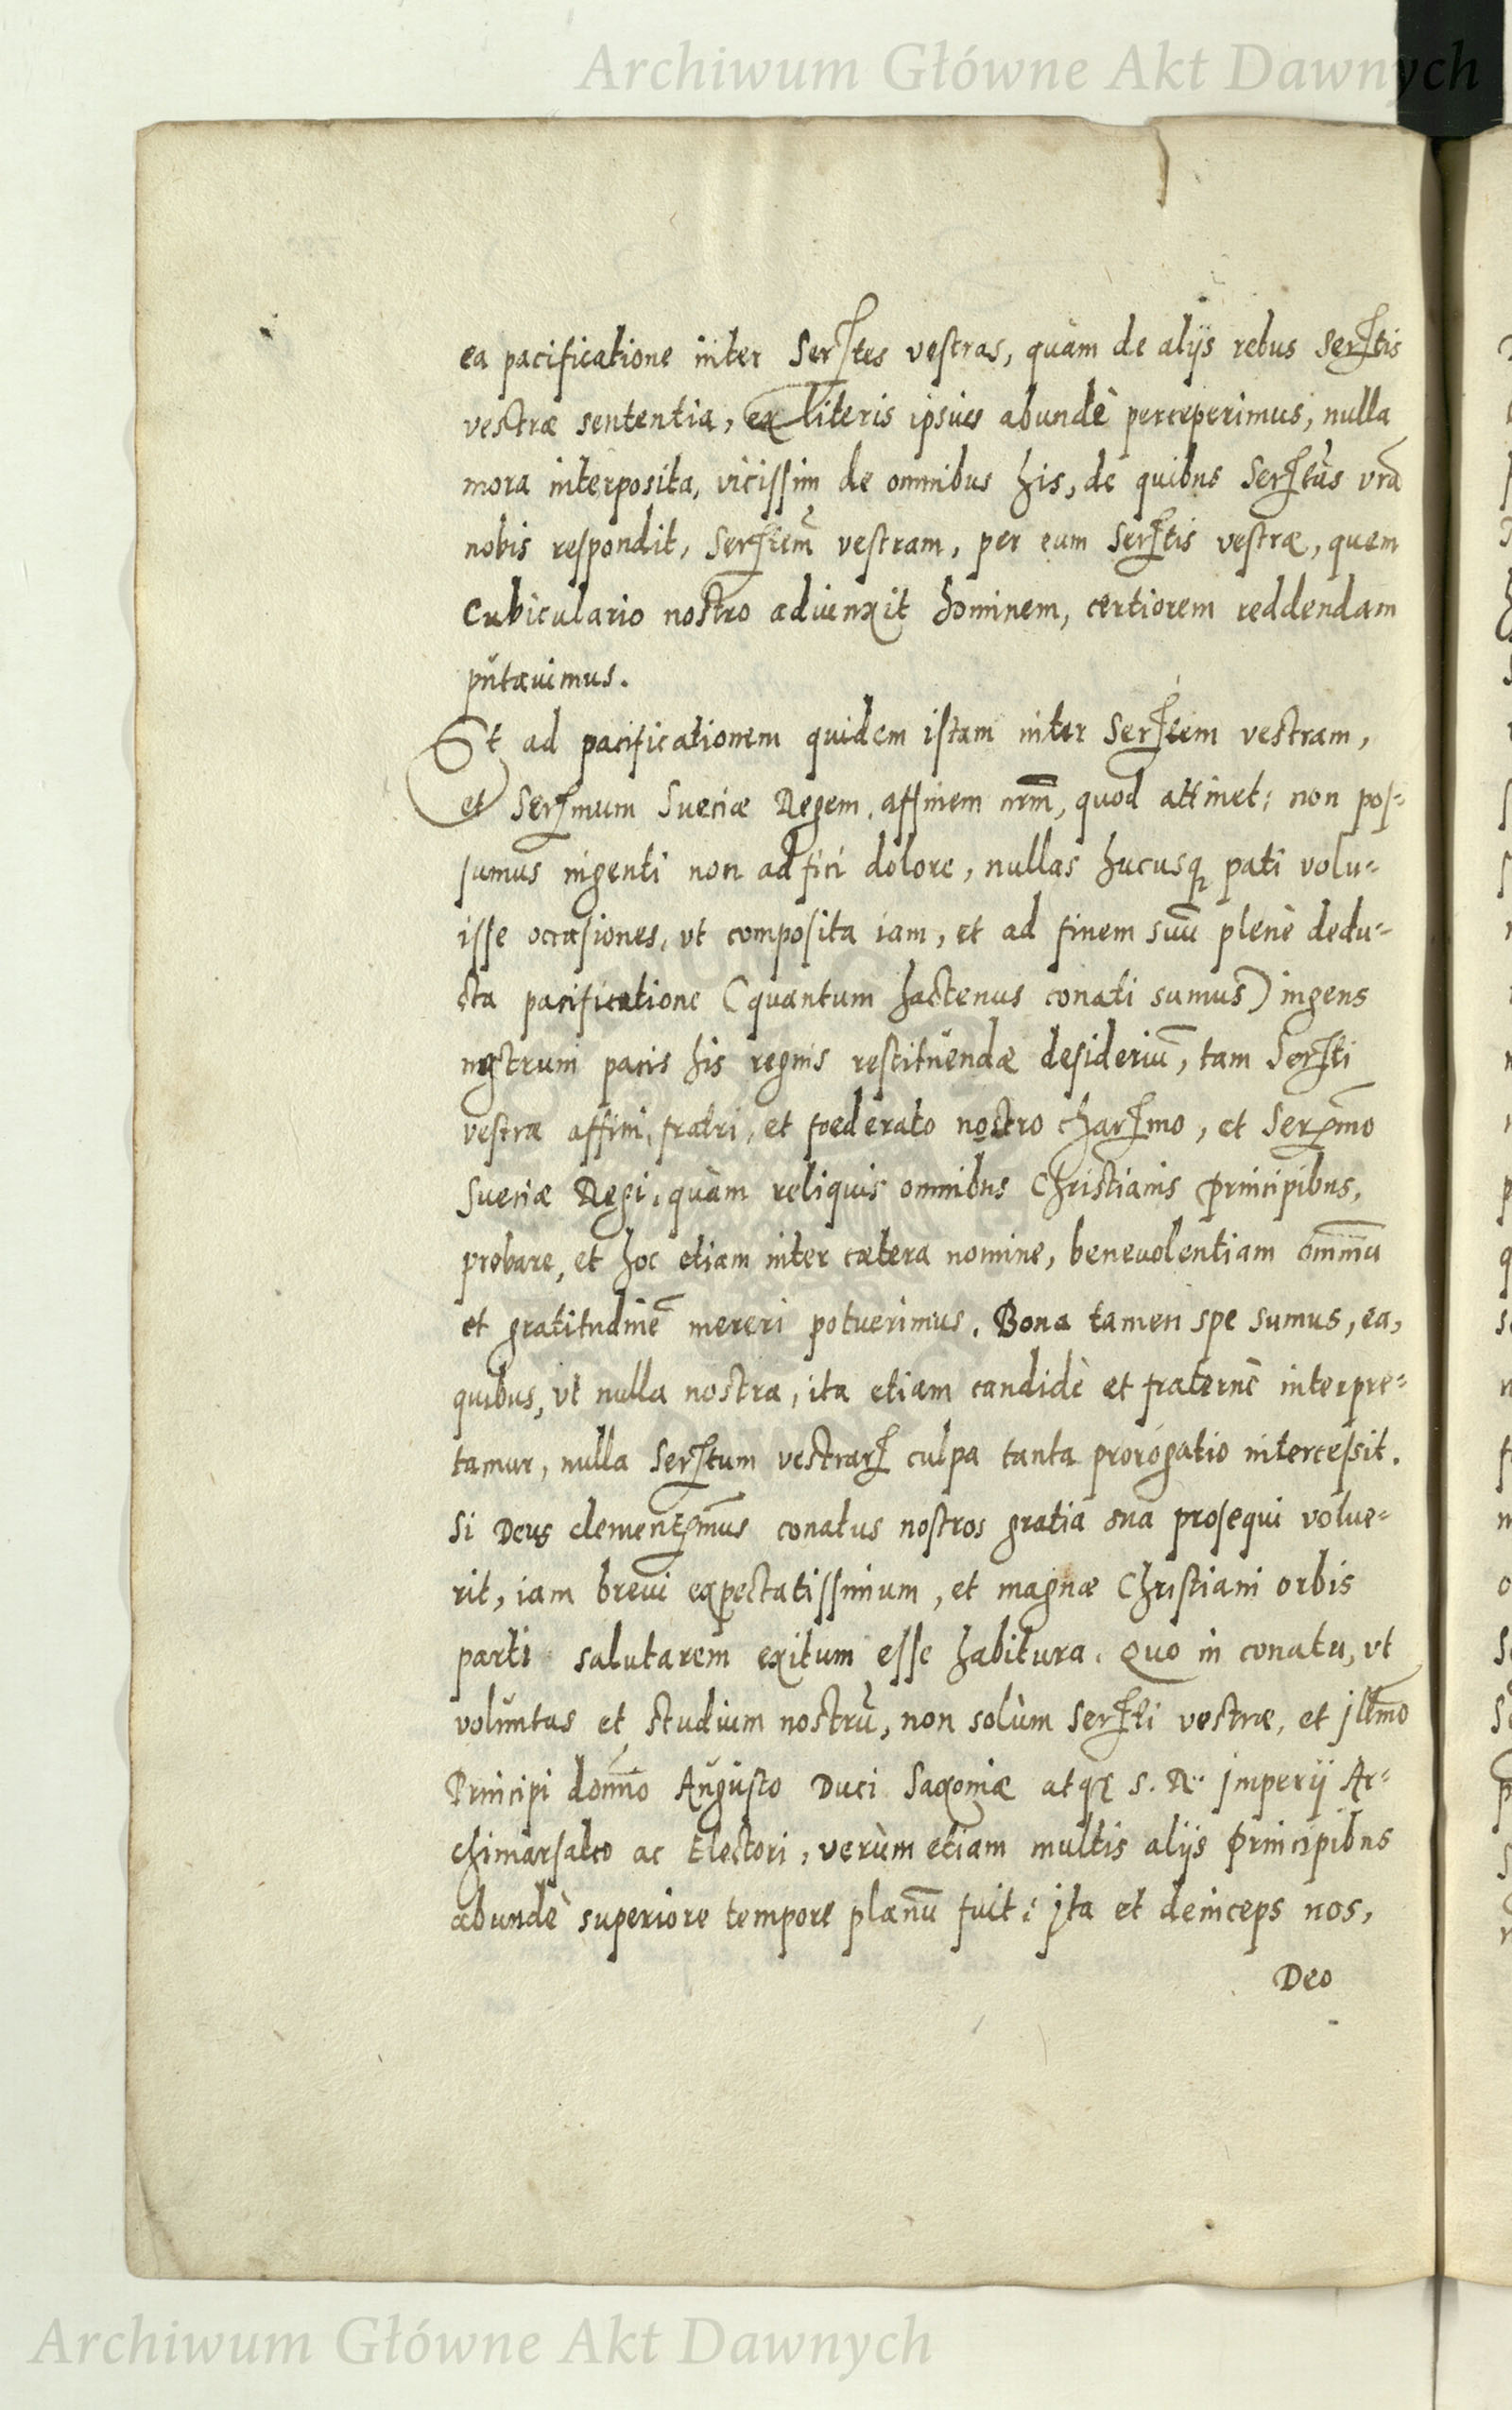 Archiwum Główne Akt Dawnych
ea pacificatione inter Serſtes vestras, quàm de alijs rebus Serſtis
vestræ sententia, ex literis ipsius abundè perceperimus, nulla
mora interposita, vicissim de omnibus his, de quibus Serſtas vrã
nobis respondit, Serſtem vestram, per eum Serſtis vestræ, quem
Cubiculario nostro adiunxit hominem, certiorem reddendam
putauimus.
Et ad pacificationem quidem istam inter Serſtem vestram,
et Serſmum Sueciæ Regem, affinem nrm̃, quod attinet: non pos-
sumus ingenti non adfici dolore, nullas hucusq pati volu-
isse occasiones, vt composita iam, et ad finem suũ plenè dedu-
cta pacificatione (quantum hactenus conati sumus) ingens
nostrum pacis his regnis restituendæ desideriũ, tam Serſti
vestræ affini, fratri, et foederato nostro charſmo, et Serſmo
Sueciæ Regi, quàm reliquis omnibus Christianis Principibus,
probare, et hoc etiam inter cætera nomine, benevolentiam omniũ
et gratitudinẽ mereri potuerimus. Bona tamen spe sumus, ea,
quibus, vt nulla nostra, ita etiam candidè et fraternè interpre-
tamur, nulla Serſtum vestrarũ culpa tanta prorogatio intercessit.
Si Deus clementſmus conatus nostros gratia sua prosequi volue-
rit, iam brevi expectatissimum, et magnæ Christiani orbis
parti salutarem exitum esse habitura. Quo in conatu, vt
voluntas et studium nostrũ, non solùm Serſti vestræ, et jllmo
Principi domno Augusto Duci Saxoniæ atq S. R. jmperij Ar-
chimarsalco ac Electori, verùm etiam multis alijs Principibus
abundè superiore tempore planũ fuit: jta et deinceps nos,
Deo
Archiwum Główne Akt Dawnych